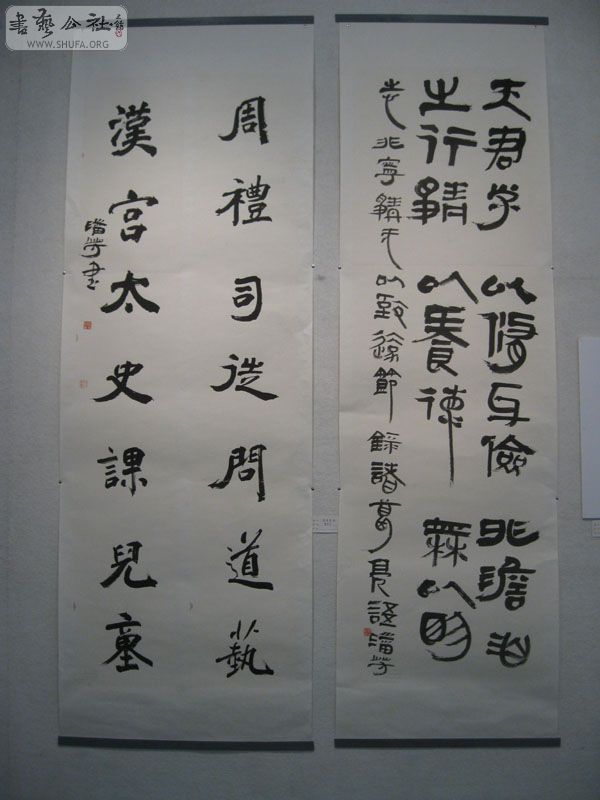 夫君子
之行靜
以修身儉
以養德
非澹泊
無以明
志非寧靜无以致遠節錄諸葛亮語
周禮司徒問道藝
漢宮太史課兒童
書
書藝公社
WWW.SHUFA.ORG